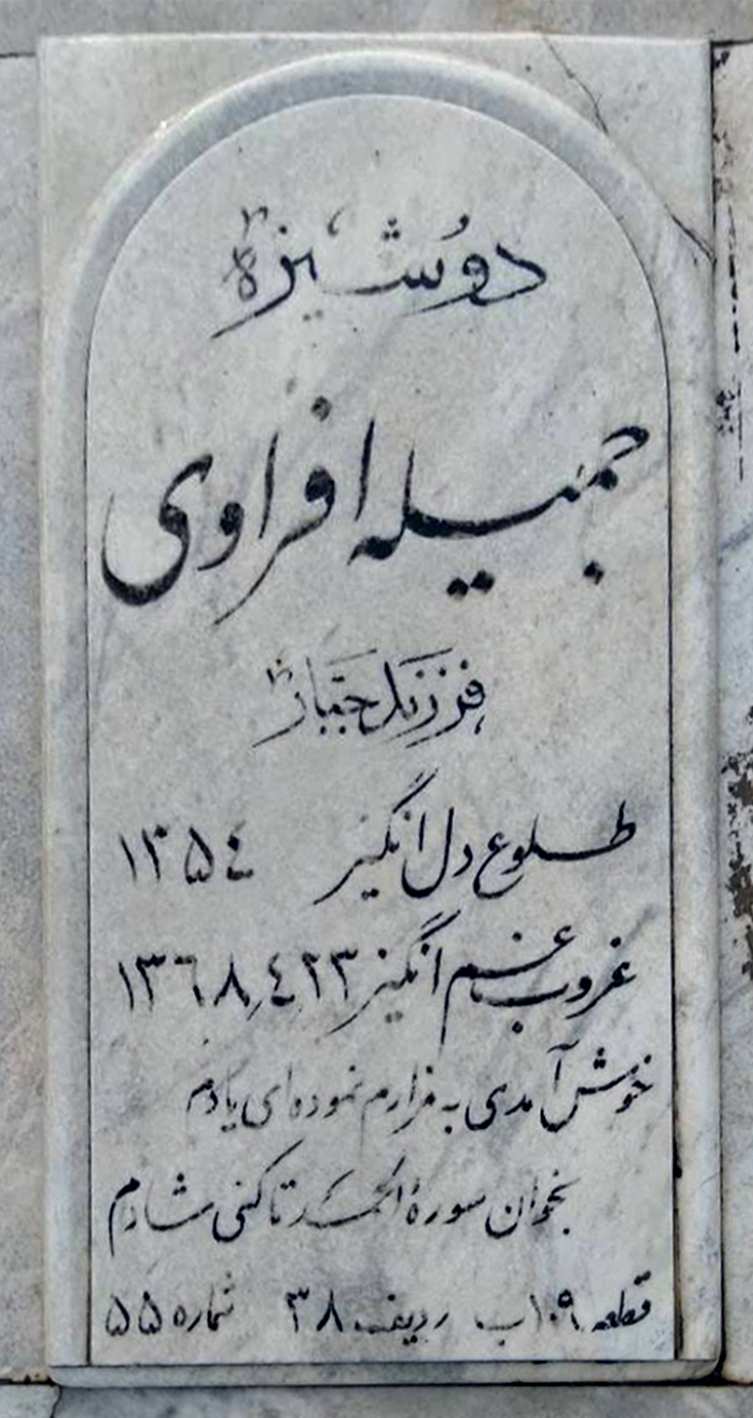 دوشیزه
جمیله افراوی
فرزند جبار
طلوع دل انگیز ۱۳۵٤
غروب غم انگیز ۱۳٦۸٫٤٫۲۳
خوش آمدی به مزارم نموده ای یادم
بخوان سورهٔ الحمد تا کنی شادم
قطعه ۱۰۹ب ردیف ۳۸ شماره ۵۵